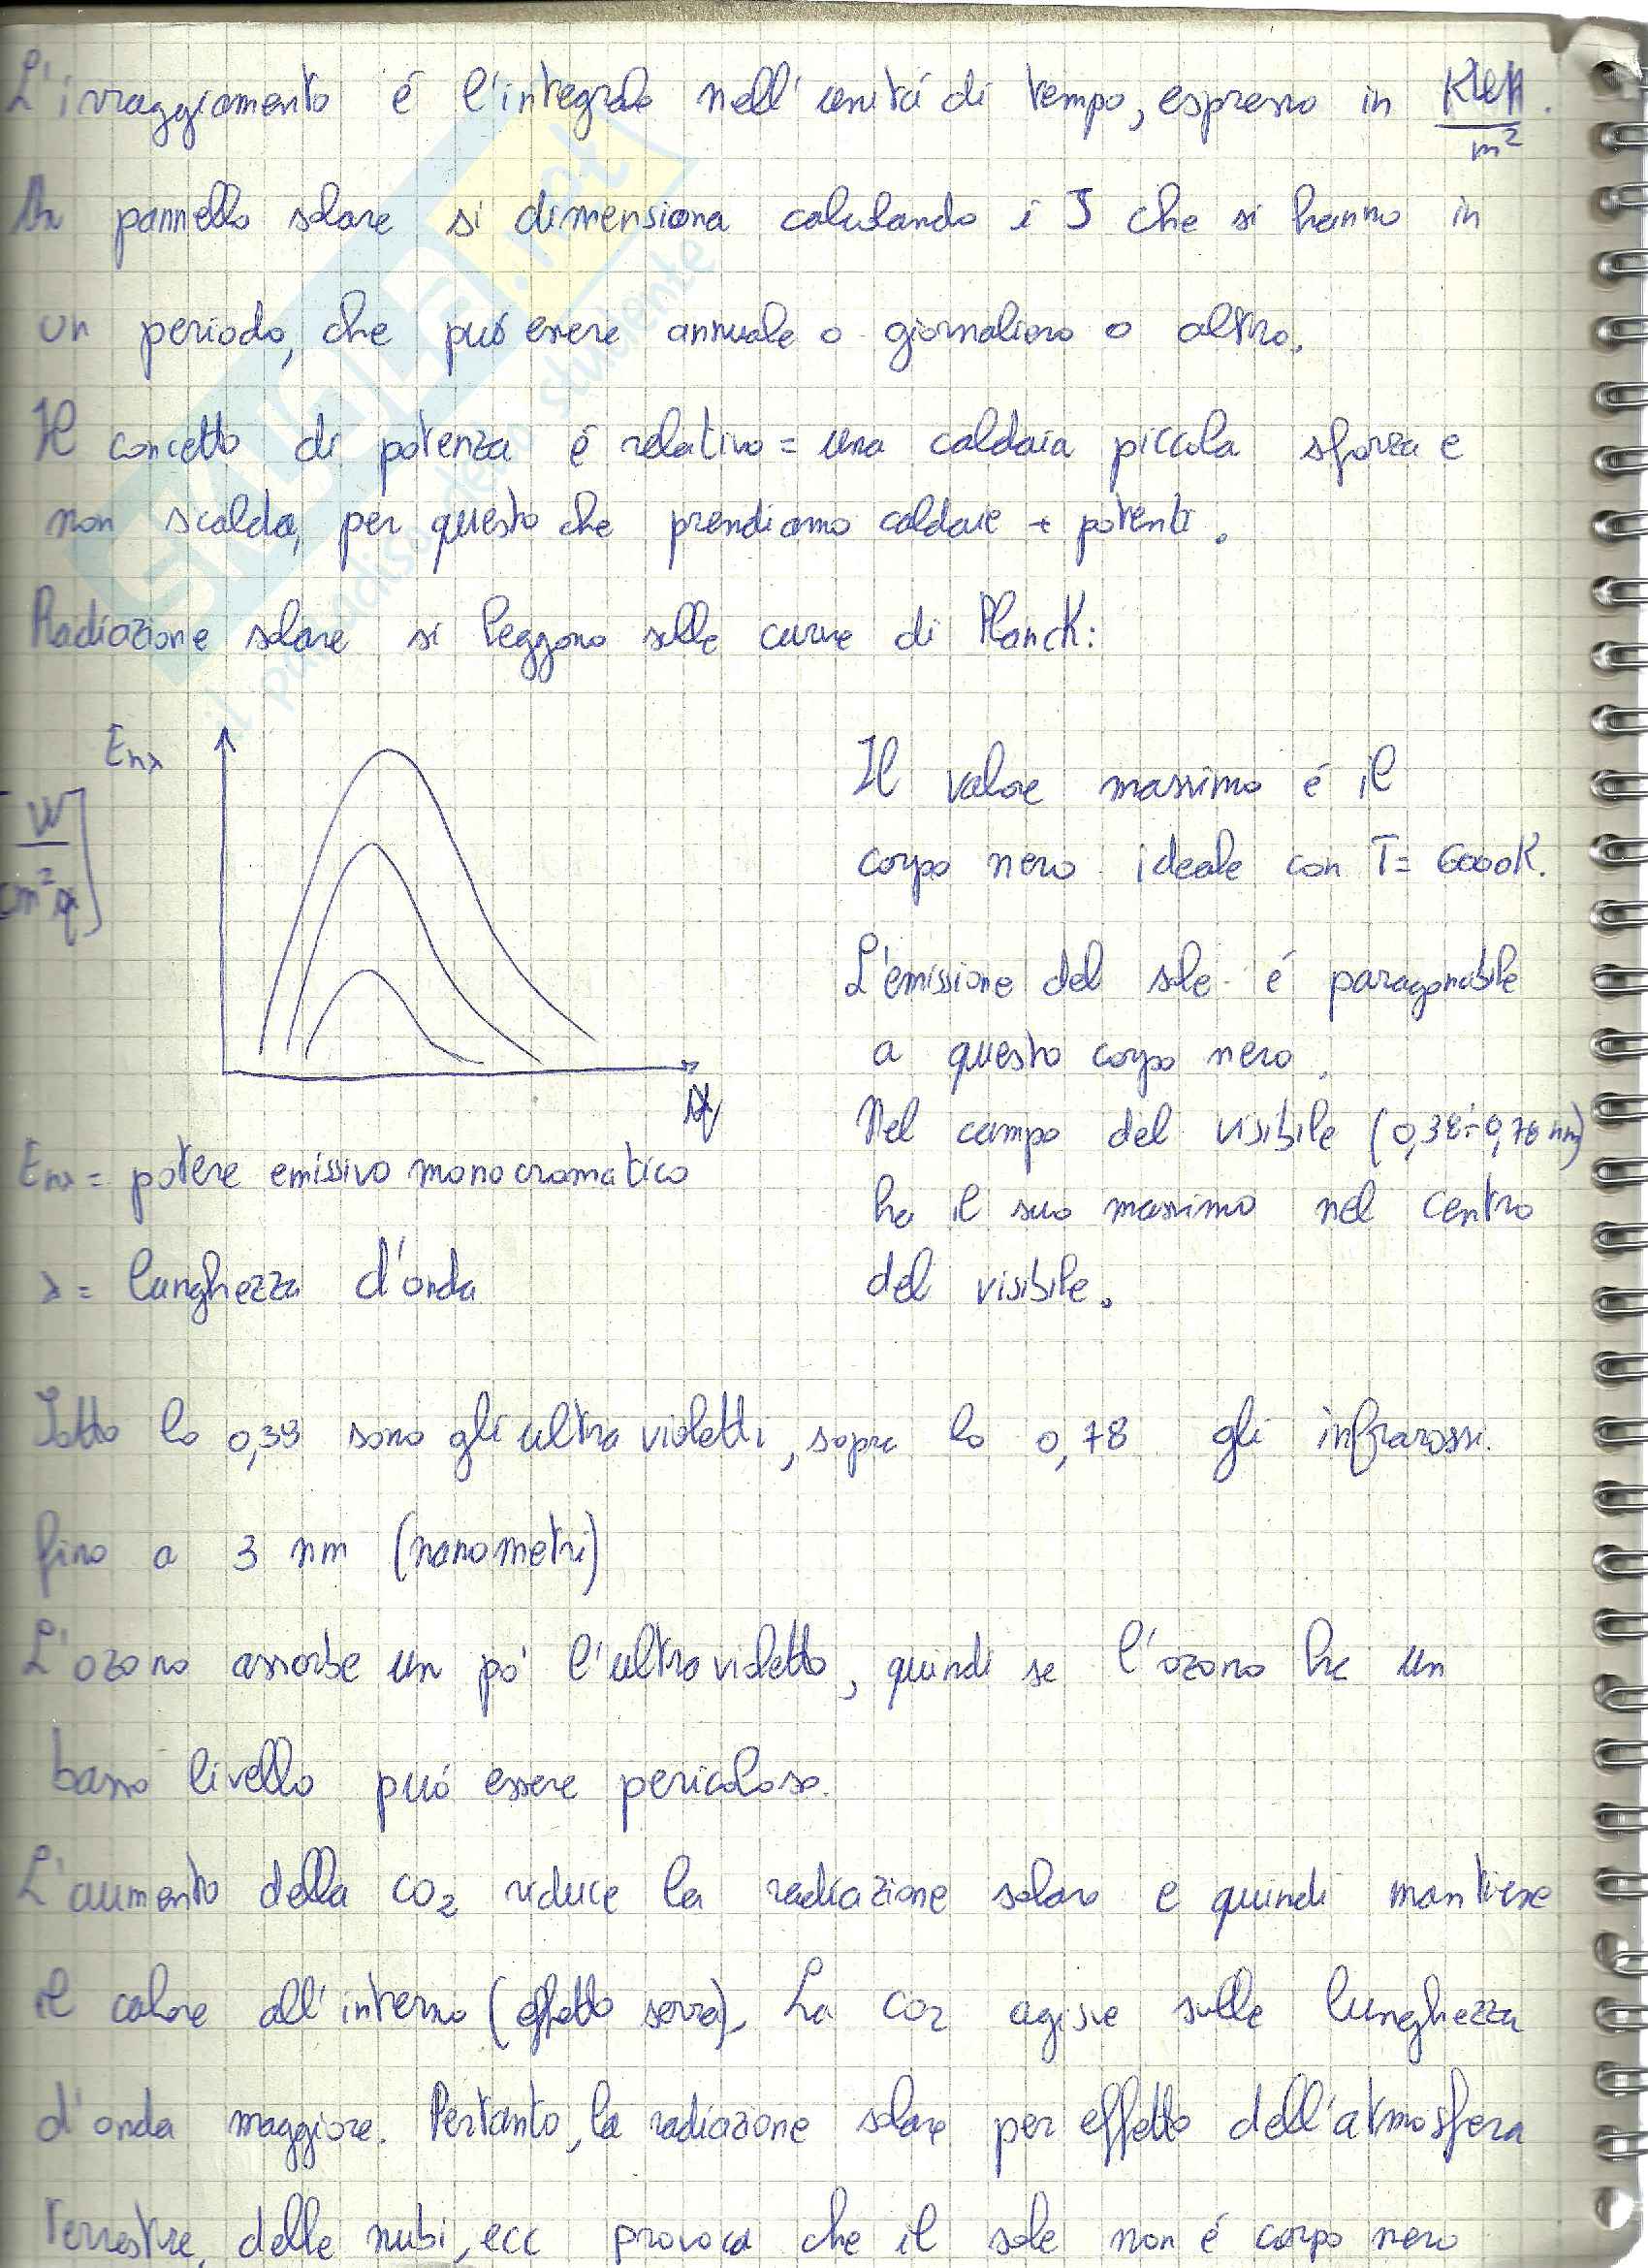 L'irraggiamento é l'integrale nell'unitá di tempo, espresso in KWh/m².
Un pannello solare si dimensiona calcolando i J che si hanno in
un periodo, che puó essere annuale o giornaliero o altro.
Il concetto di potenza é relativo = una caldaia piccola sforza e
non scalda, per questo che prendiamo caldaie + potenti.
Radiazione solare si leggono sulle curve di Planck:
Enλ
Il valore massimo é il
corpo nero ideale con T= 6000K.
L'emissione del sole é paragonabile
a questo corpo nero.
Nel campo del visibile (0,38÷0,78 nm)
ha il suo massimo nel centro
del visibile.
Enλ = potere emissivo monocromatico
λ = lunghezza d'onda
Sotto lo 0,38 sono gli ultravioletti, sopra lo 0,78 gli infrarossi.
fino a 3 nm (nanometri)
L'ozono assorbe un po' l'ultravioletto, quindi se l'ozono ha un
basso livello puó essere pericoloso.
L'aumento della CO2 riduce la radiazione solare e quindi mantiene
il calore all'interno (effetto serra). La CO2 agisce sulle lunghezza
d'onda maggiore. Pertanto, la radiazione solare per effetto dell'atmosfera
terrestre, delle nubi, ecc provoca che il sole non é corpo nero